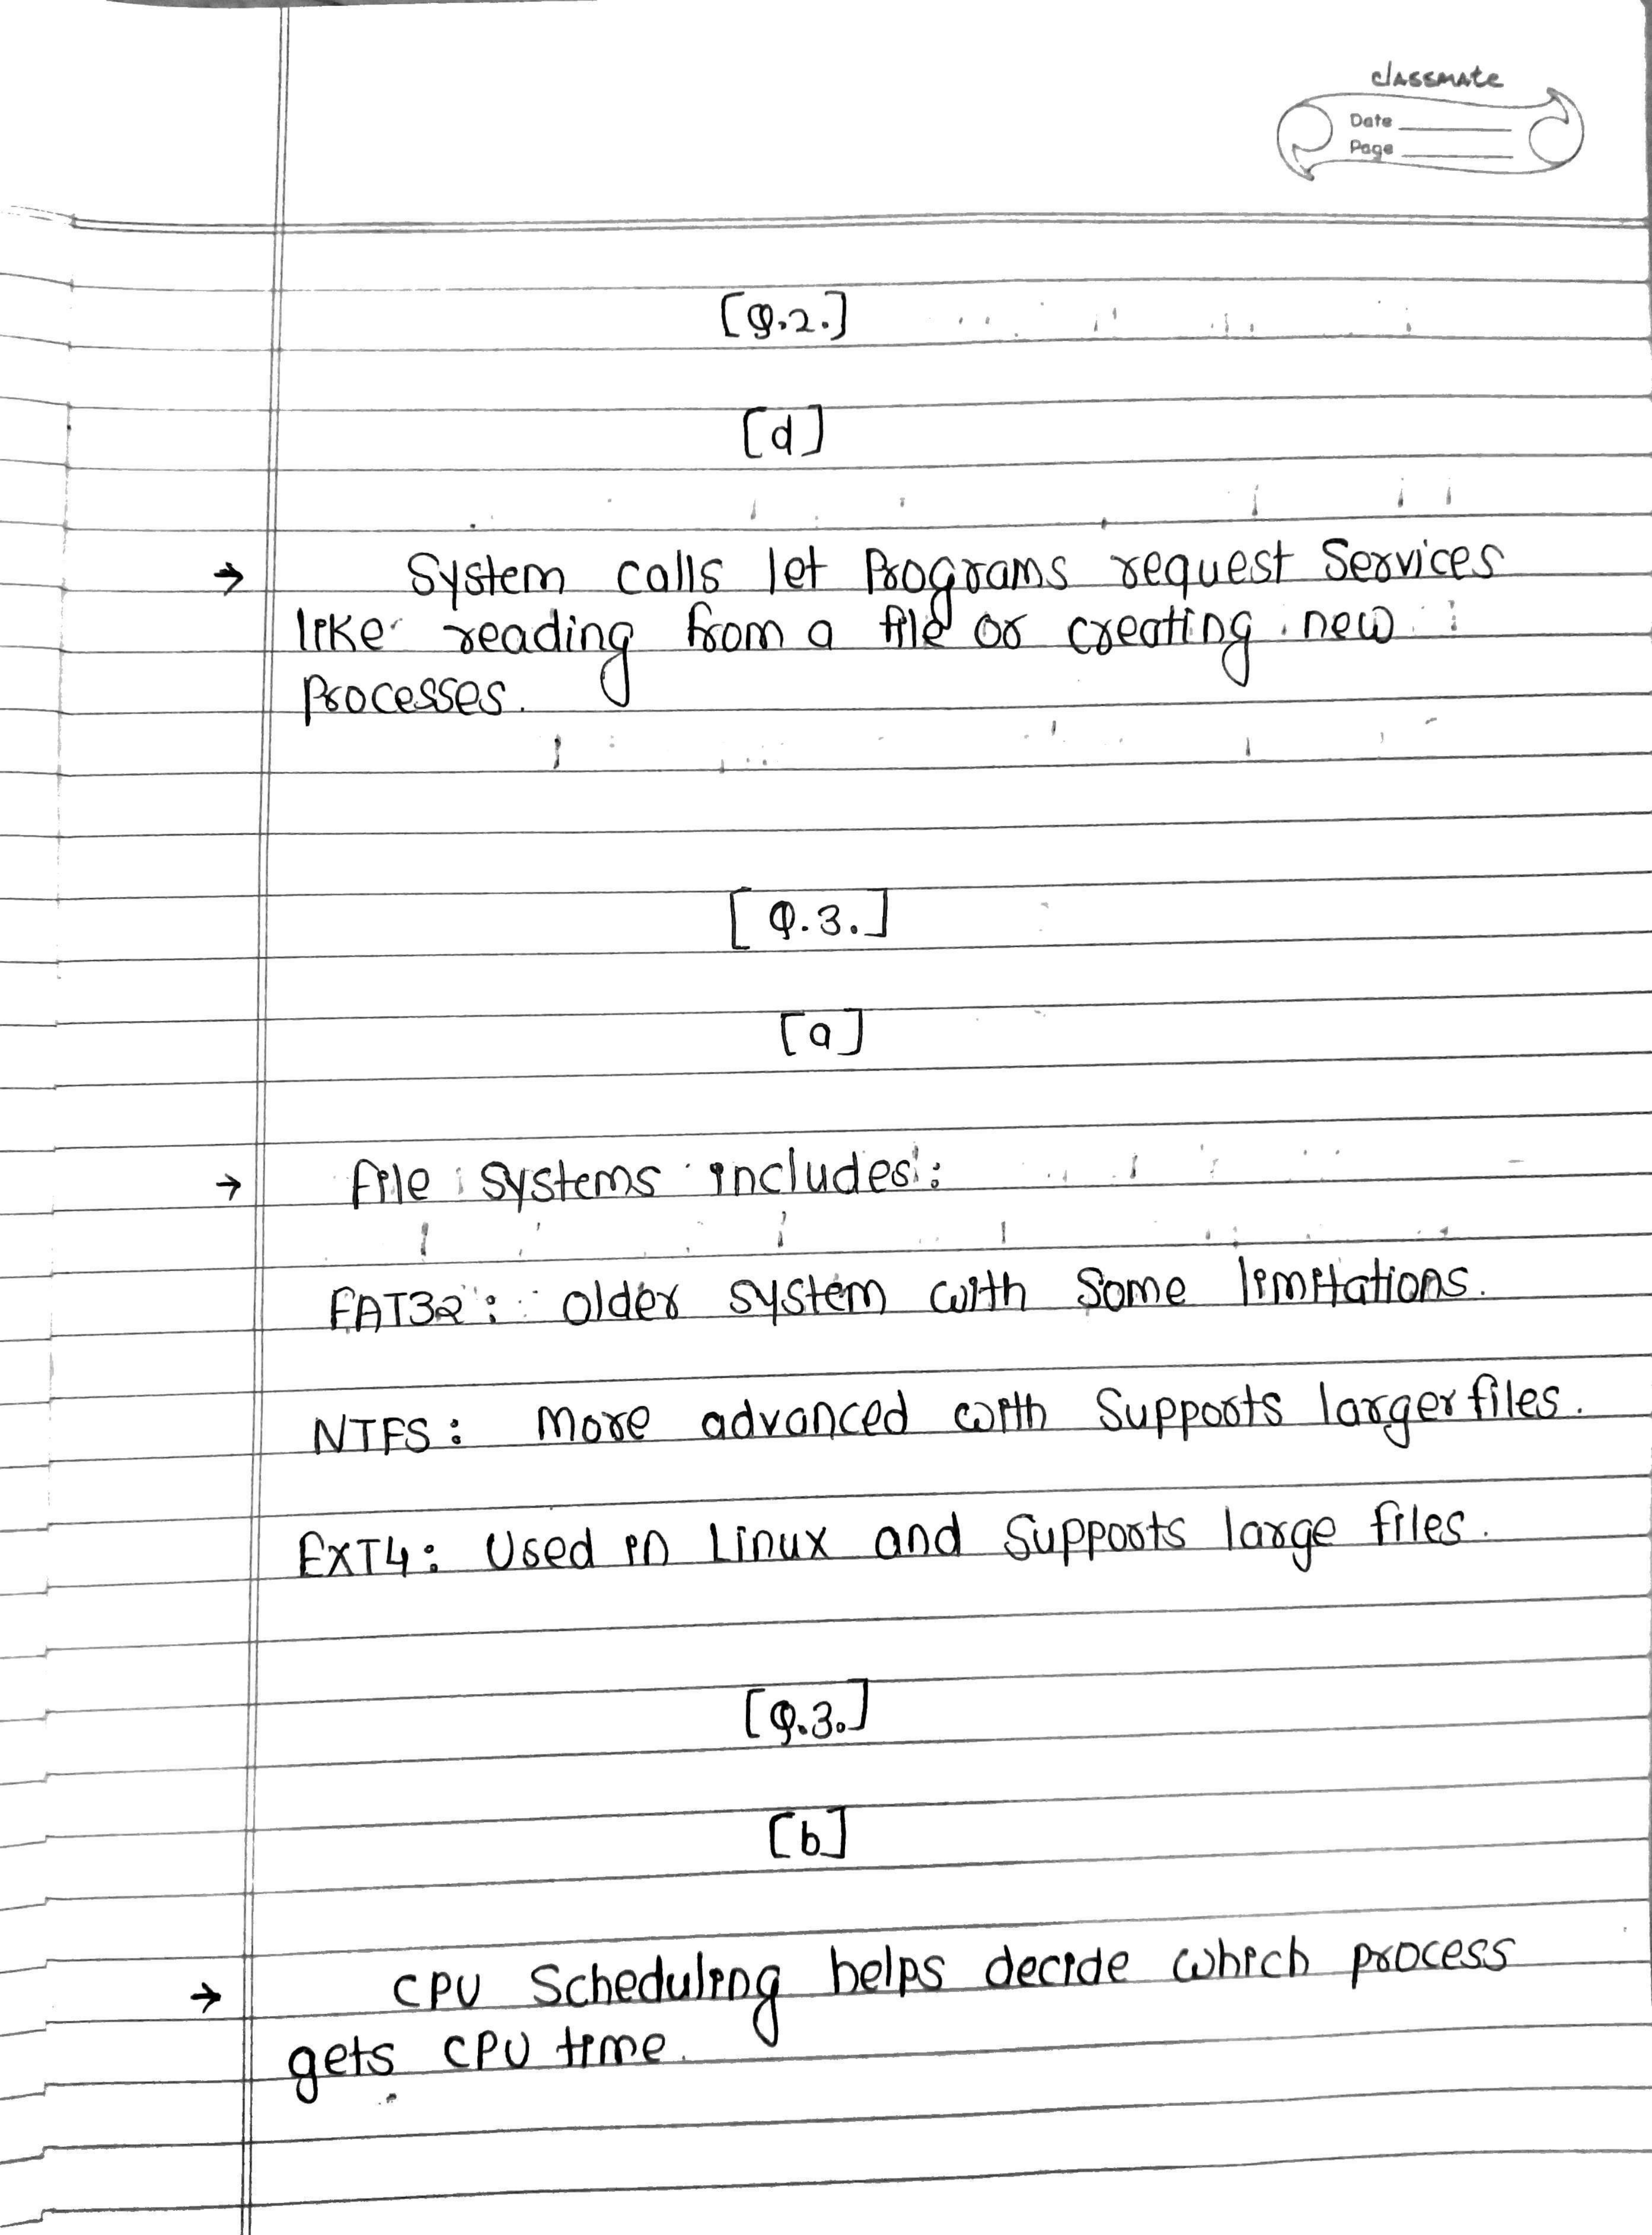 classmate
Date
Page
[Q.2.]
[d]
→ System calls let Programs request Services
like reading from a file or creating new
Processes.
[Q.3.]
[a]
→ File systems includes:
FAT32: older system with Some limitations.
NTFS: More advanced with Supports larger files.
EXT4: Used in Linux and Supports large files.
[Q.3.]
[b]
→ CPU Scheduling helps decide which process
gets CPU time.